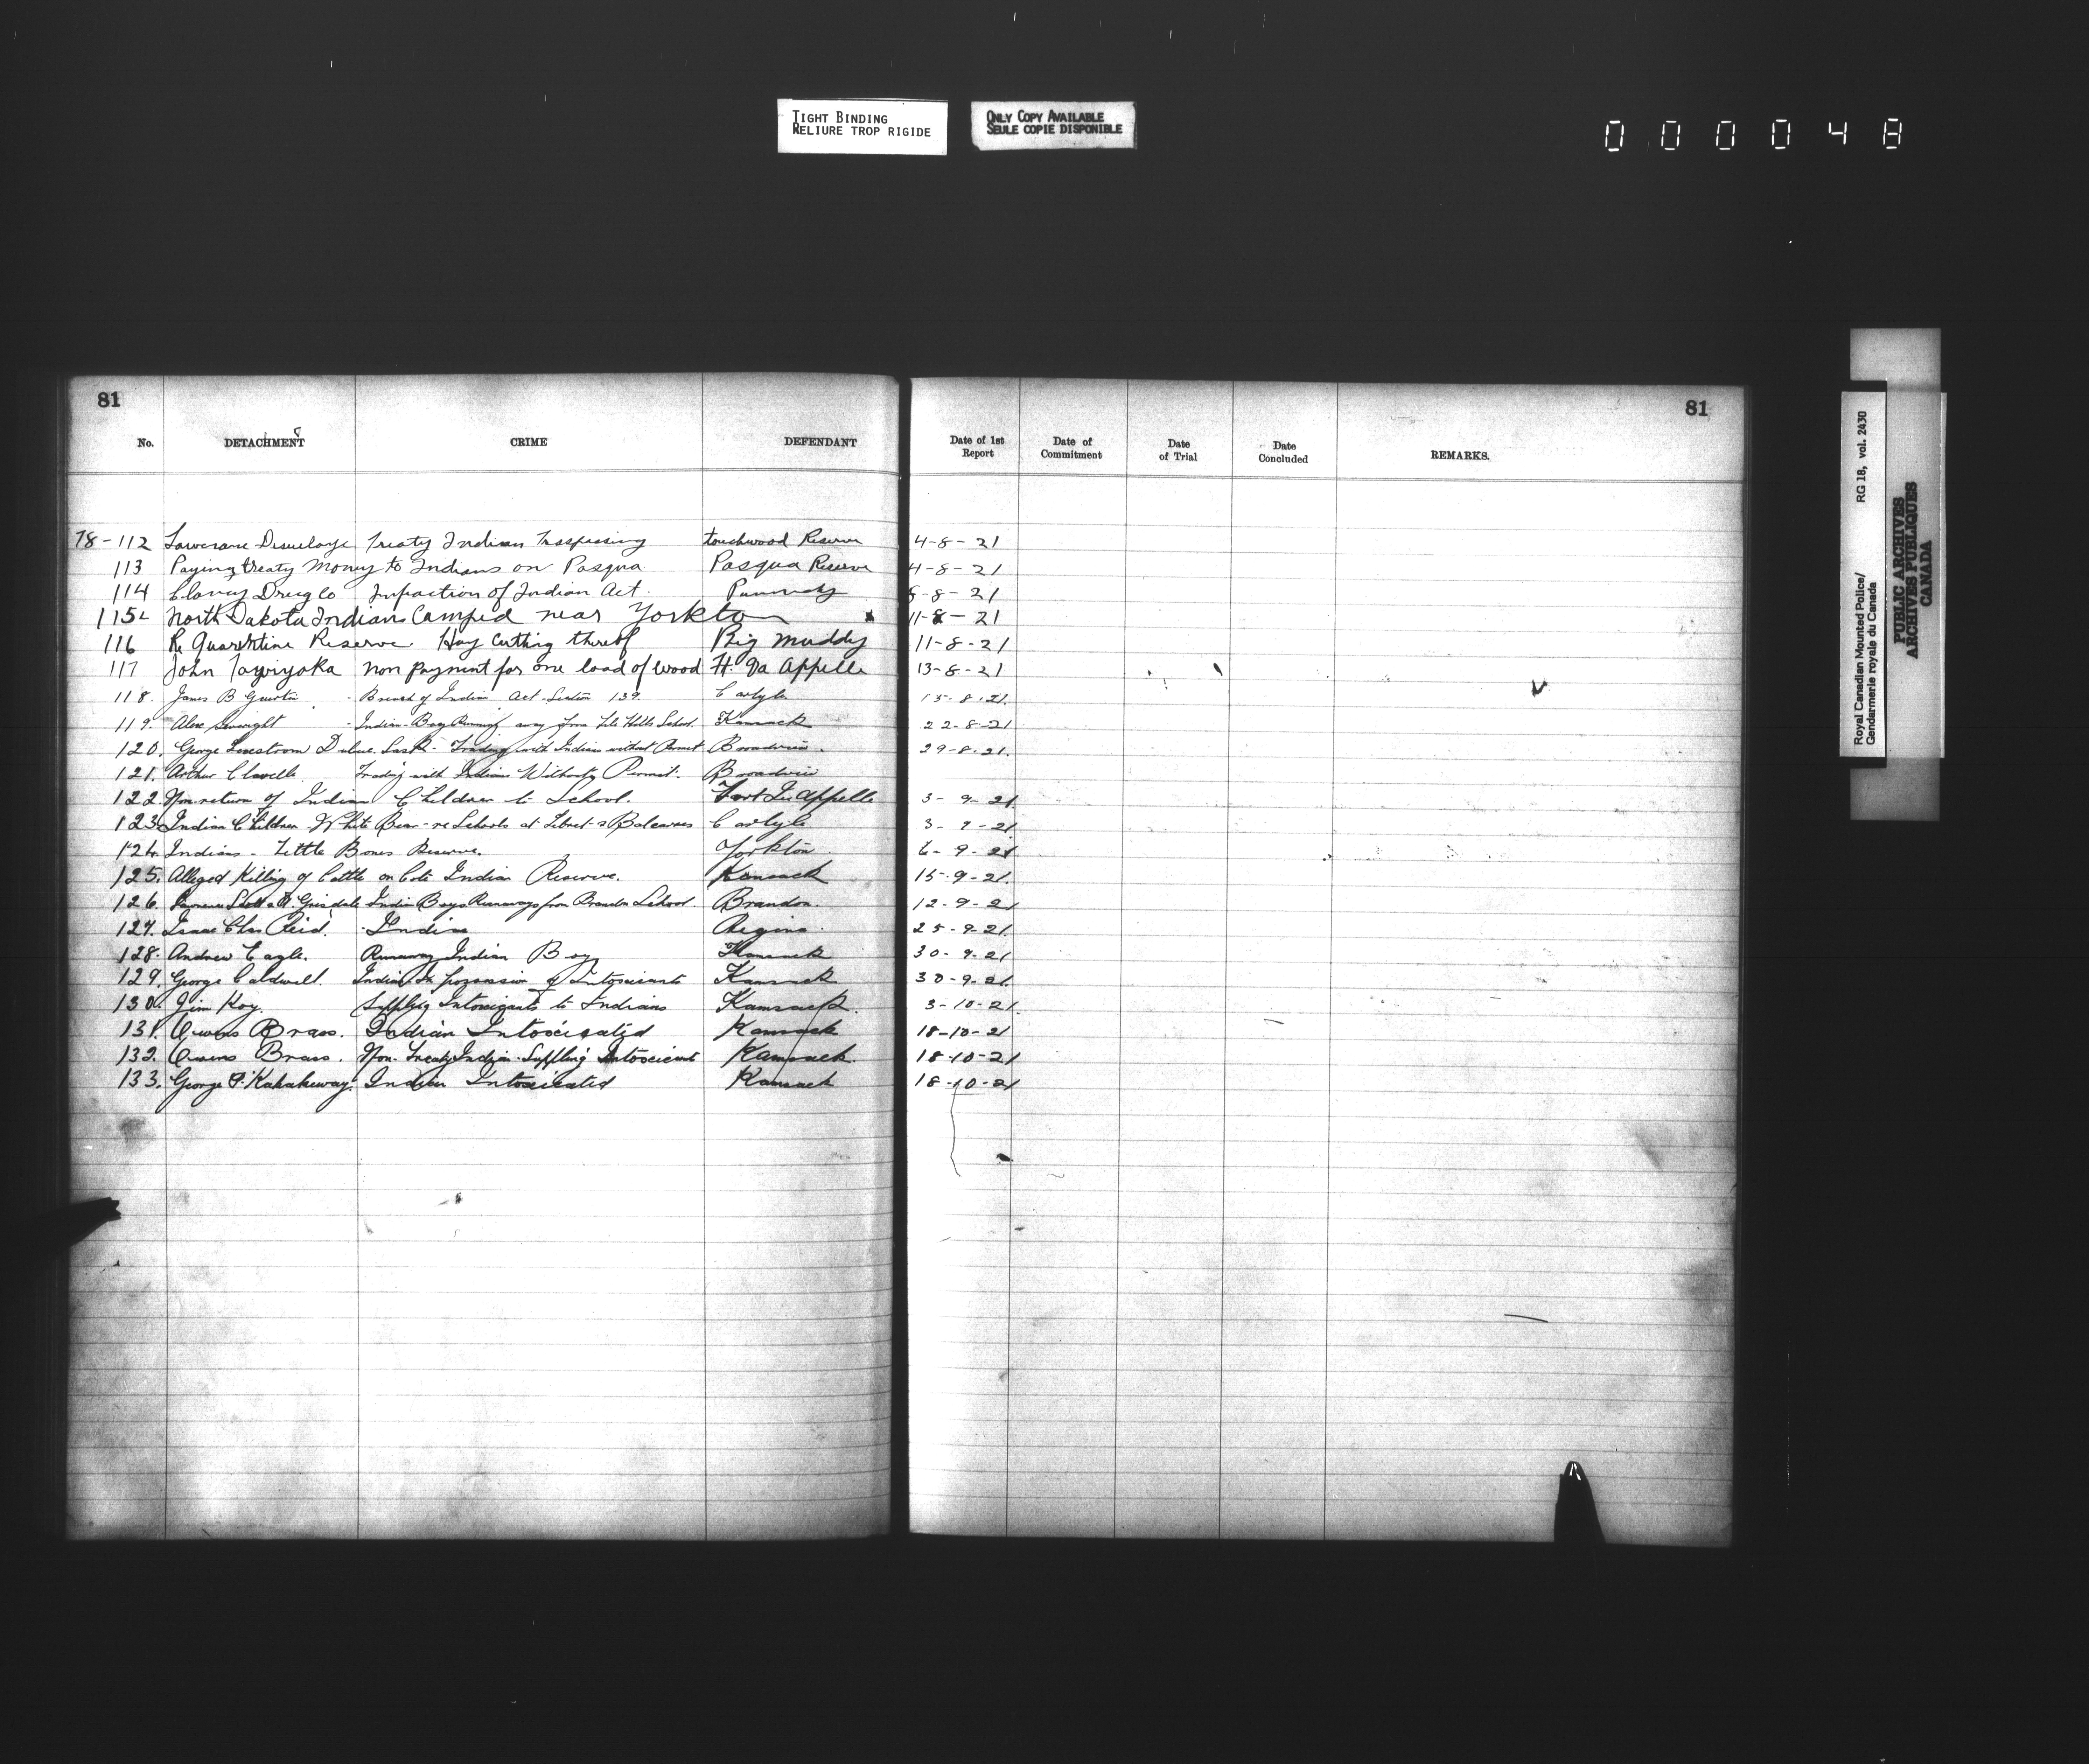 TIGHT BINDING
RELIURE TROP RIGIDE
ONLY COPY AVAILABLE
SEULE COPIE DISPONIBLE
000048
81
81
No. DETACHMENT CRIME DEFENDANT Date of 1st Report Date of Commitment Date of Trial Date Concluded REMARKS.
78-112 Treaty Indian Trespassing touchwood Reserve 4-8-21
113 Paying treaty Money to Indians on Pasqua Pasqua Reserve 4-8-21
114 Clancy Drug Co Infraction of Indian Act 8-21
115 North Dakota Indians Camped near Yorkton 11-8-21
116 Re Quarantine Reserve. Hay Cutting thereof Big Muddy 11-8-21
117 John non payment for one load of wood Ft. Qu Appelle 13-8-21
118. James B - Breach of Indian Act - Section 139. Carlyle 15-8-21.
119. Alex - Indian Boy Running away from File Hills School. Kamsack 22-8-21
120. George Sask. Trading with Indians without Permit Broadview. 29-8-21.
121. Arthur Clavelle Trading with Indians Without Permit. Broadview
122. Non-return of Indian Children to School. Fort Qu Appelle 3-9-21
123. Indian Children White Bear - re Schools at Lebret & Carlyle 3-9-21
124. Indians - Little Bones Reserve. Yorkton 6-9-21
125. Alleged Killing of Cattle on Cote Indian Reserve. Kamsack 15-9-21.
126. Lawrence Scott & Grisdale Indian Boys Runaways from Brandon School. Brandon. 12-9-21
127. Isaac Chas Reid. - Indian Regina. 25-9-21.
128. Andrew Eagle. Runaway Indian Boy Kamsack 30-9-21
129. George Caldwell. Indian In possession of Intoxicants Kamsack 30-9-21.
130. Jim Koy. Supplying Intoxicants to Indians Kamsack. 3-10-21.
131. Owens Brass. Indian Intoxicated Kamsack 18-10-21
132. Owens Brass. Non-Treaty Indian-Suppling Intoxicant Kamsack. 18-10-21
133. George P. Kakakeway. Indian Intoxicated Kamsack 18-10-21
Royal Canadian Mounted Police/ RG 18, vol. 2430
Gendarmerie royale du Canada
PUBLIC ARCHIVES
ARCHIVES PUBLIQUES
CANADA